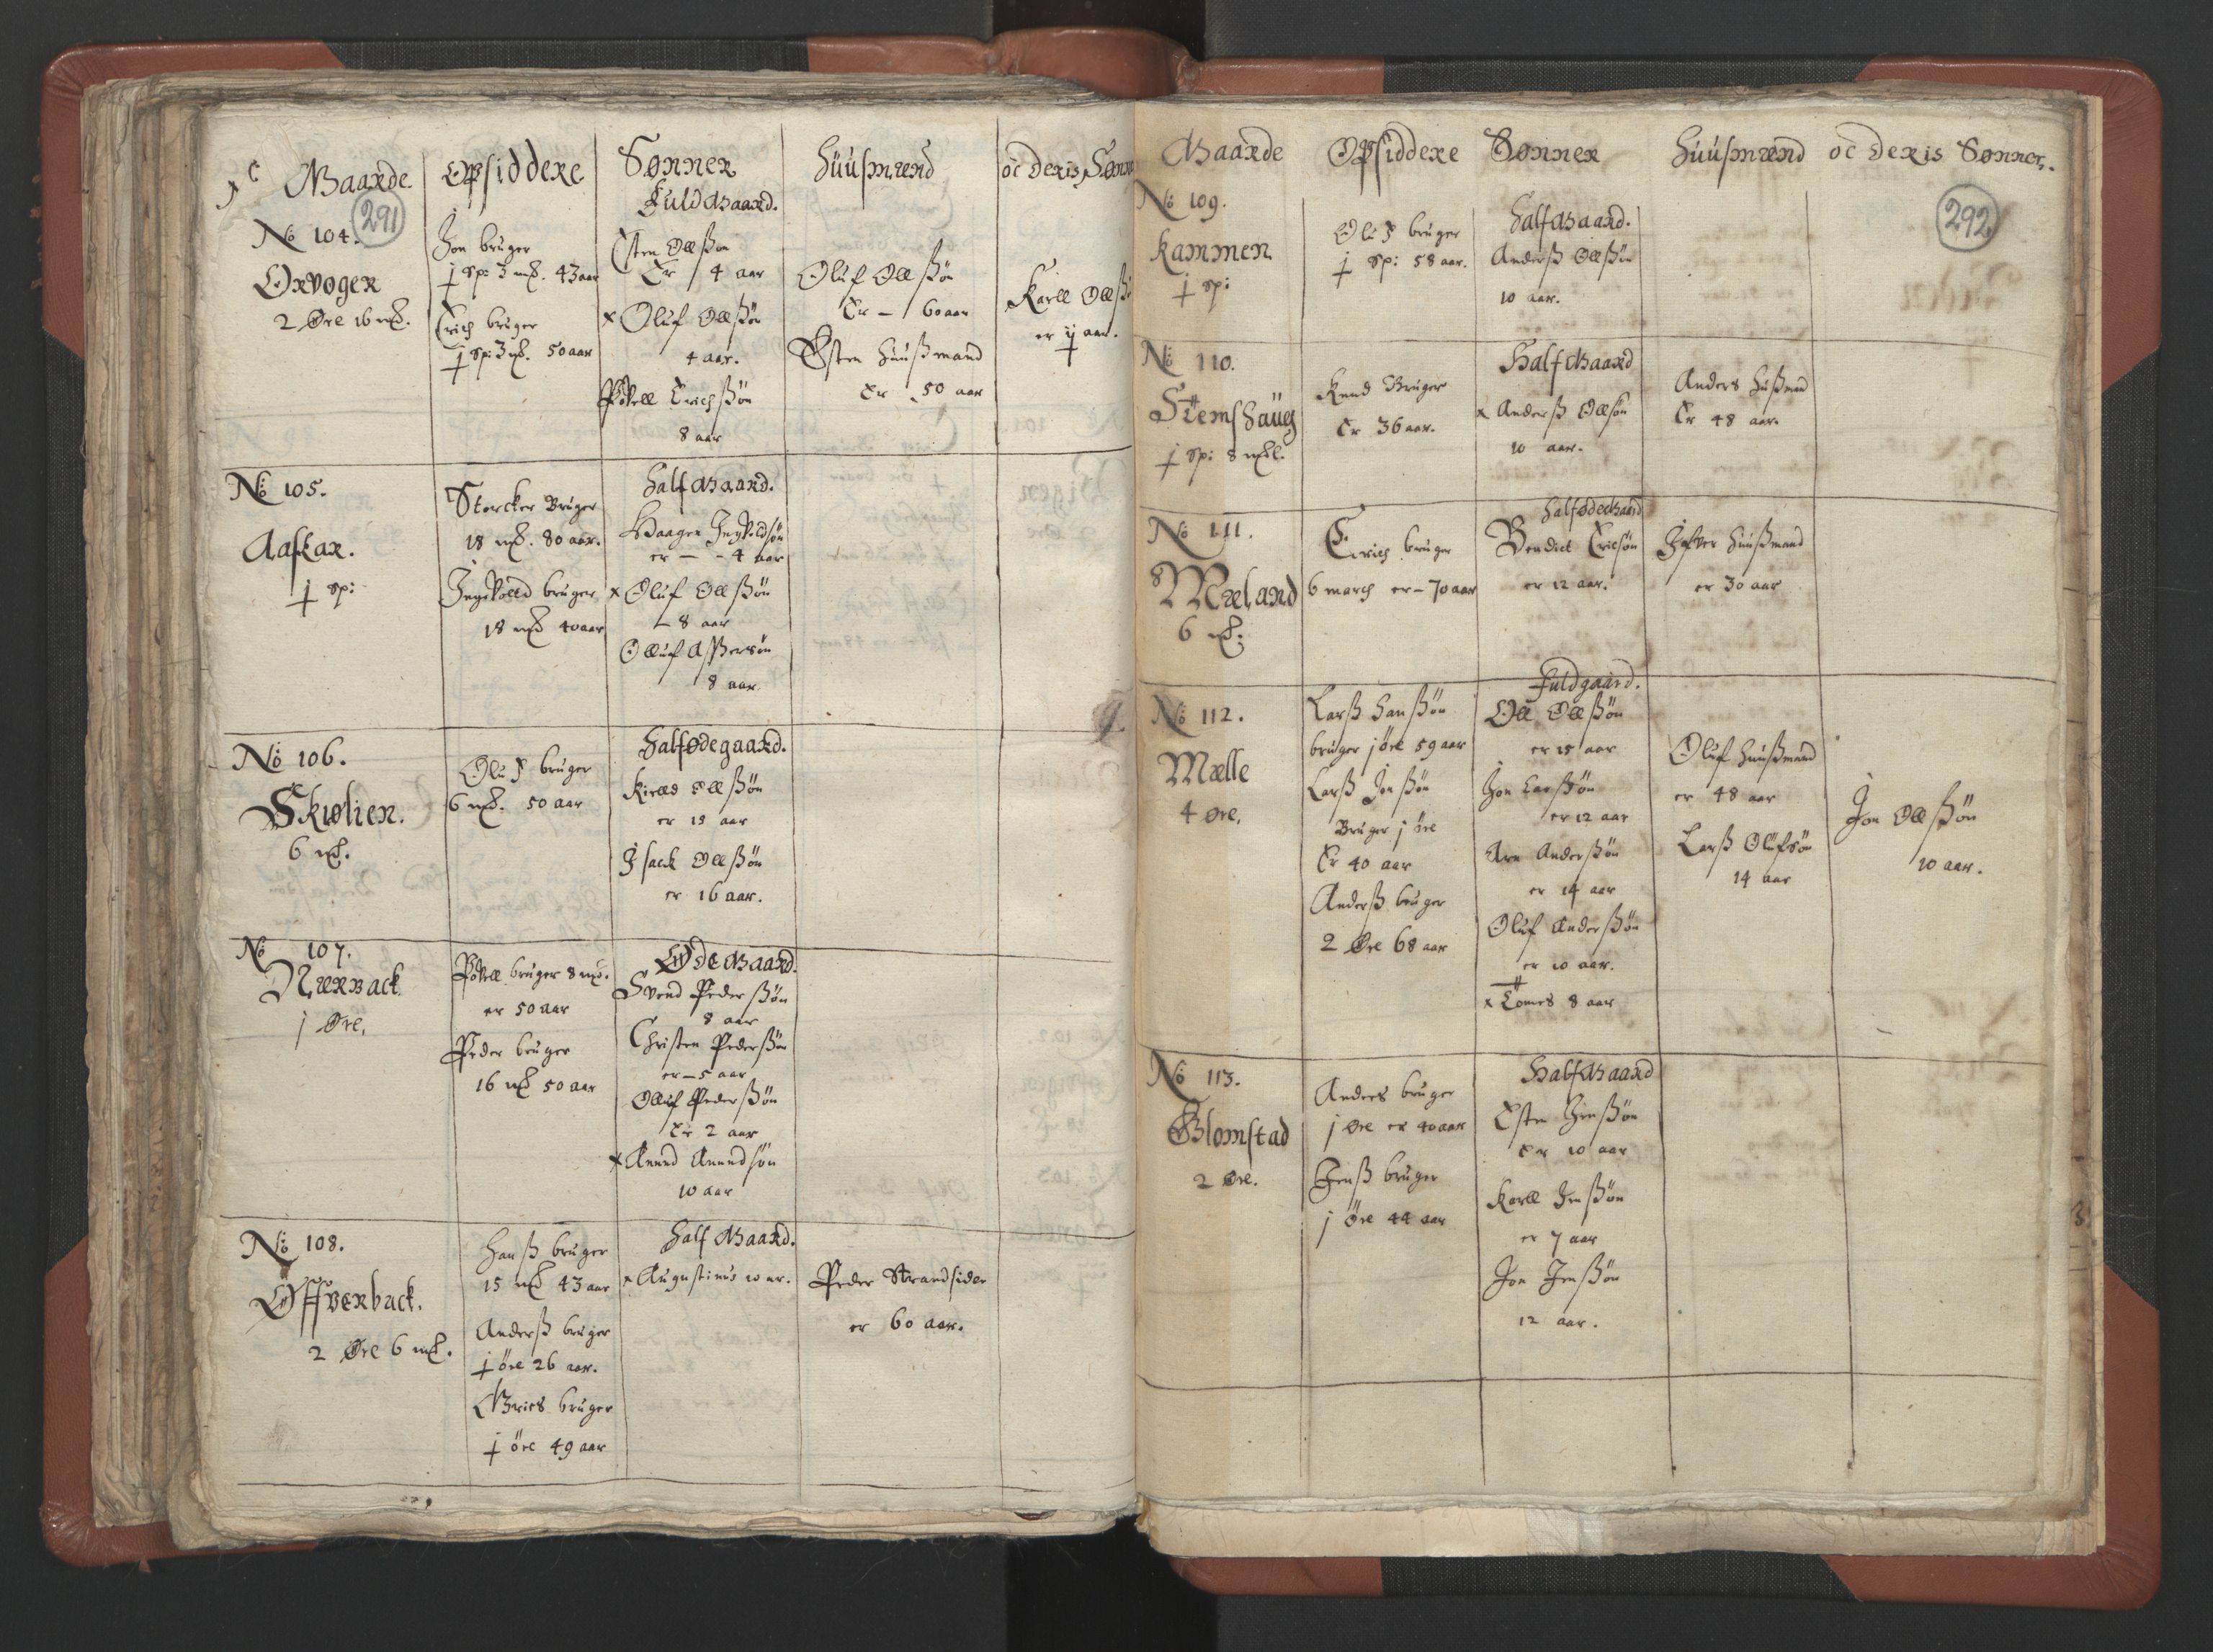 Gaarde
Opsiddere
Sønner
Huusmænd
oc deris Sønn
291
Fuldgaard.
No 104.
Orvogen
2 Øre 16 mk.
Jon bruger
j sp: 3 mk. 43 aar
Erich bruger
j sp: 3 mk. 50 aar
Esten Ollßøn
Er 4 aar
x Oluf Ollßøn
4 aar.
Povell Erichßøn
8 aar
Oluf Ollßøn
Er – 60 aar
Østen Huußmand
Er 50 aar
Karll Ollß
er ij aar.
No 105.
Aaskar.
j sp:
Storcker Bruger
18 mk. 80 aar.
Ingevold bruger
18 mk 40 aar
Halfgaard.
Haagen Ingvoldsøn
er – – 4 aar
x Oluf Ollßøn
– 8 aar
Olluf Assersøn
8 aar
No 106.
Skiølien.
6 mk.
Oluf bruger
6 mk. 50 aar
Halfødegaard.
Kield Ollßøn
er 18 aar
Isack Ollßøn
er 16 aar.
No 107.
Nærback
j Øre.
Povell bruger 8 mk.
er 50 aar
Peder bruger
16 mk 50 aar
Ødegaard.
Svend Pederßøn
8 aar
Christen Pederßøn
er – 5 aar
Olluf Pederßøn
Er 2 aar
x Amund Amundsøn
10 aar
No 108.
Øffverback.
2 Øre 6 mk.
Hanß bruger
15 mk 43 aar
Anderß bruger
j øre 26 aar.
Griels bruger
j øre 49 aar
Half Gaard.
x Augustinus 10 ar.
Peder Strandsider
er 60 aar.
Gaarde
Opsiddere
Sønner
Huusmænd
oc deris Sønner.
292
No 109.
Kammen
j sp:
Oluf bruger
j sp: 58 aar.
Halfgaard.
Anderß Ollßøn
10 aar.
No 110.
Stemshaug
j sp: 8 mk.
Knud Bruger
Er 36 aar.
Halfgaard
x Anderß Ollsøn
10 aar.
Anders Hußmand
Er 48 aar.
No 111.
Mæland
6 mk.
Erich bruger
6 march er – 70 aar
Halfødegaard
Bendict Ericsøn
er 12 aar.
Ifver Huußmand
er 30 aar
No 112.
Mælle
4 Øre.
Larß Hanßøn
bruger j øre 59 aar
Larß Jonßøn
Bruger j øre
Er 40 aar
Anderß bruger
2 Øre 68 aar
Fuldgaard.
Oll Ollßøn
er 15 aar
Jon Larßøn
er 12 aar
Arn Anderßøn
er 14 aar
Oluf Anderßøn
er 10 aar.
x Tomes 8 aar
Oluf Huußmand
er 48 aar
Larß Olufsøn
14 aar
Jon Ollßøn
10 aar.
No 113.
Blomstad
2 Øre.
Anders bruger
j Øre er 40 aar
Jenß bruger
j Øre 44 aar
Halfgaard
Esten Jenßøn
Er 10 aar
Karll Jenßøn
er 7 aar
Jon Jenßøn
12 aar.